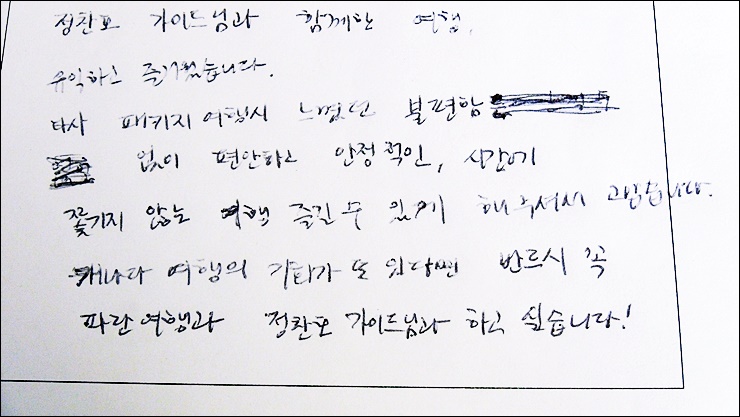 정찬호 가이드님과 함께한 여행,
유익하고 즐거웠습니다.
타사 패키지 여행시 느꼈던 불편함
없이 편안하고 안정적인, 시간에
쫓기지 않는 여행 즐길 수 있게 해주셔서 고맙습니다.
캐나다 여행의 기회가 또 있다면 반드시 꼭
파란여행과 정찬호 가이드님과 하고 싶습니다!